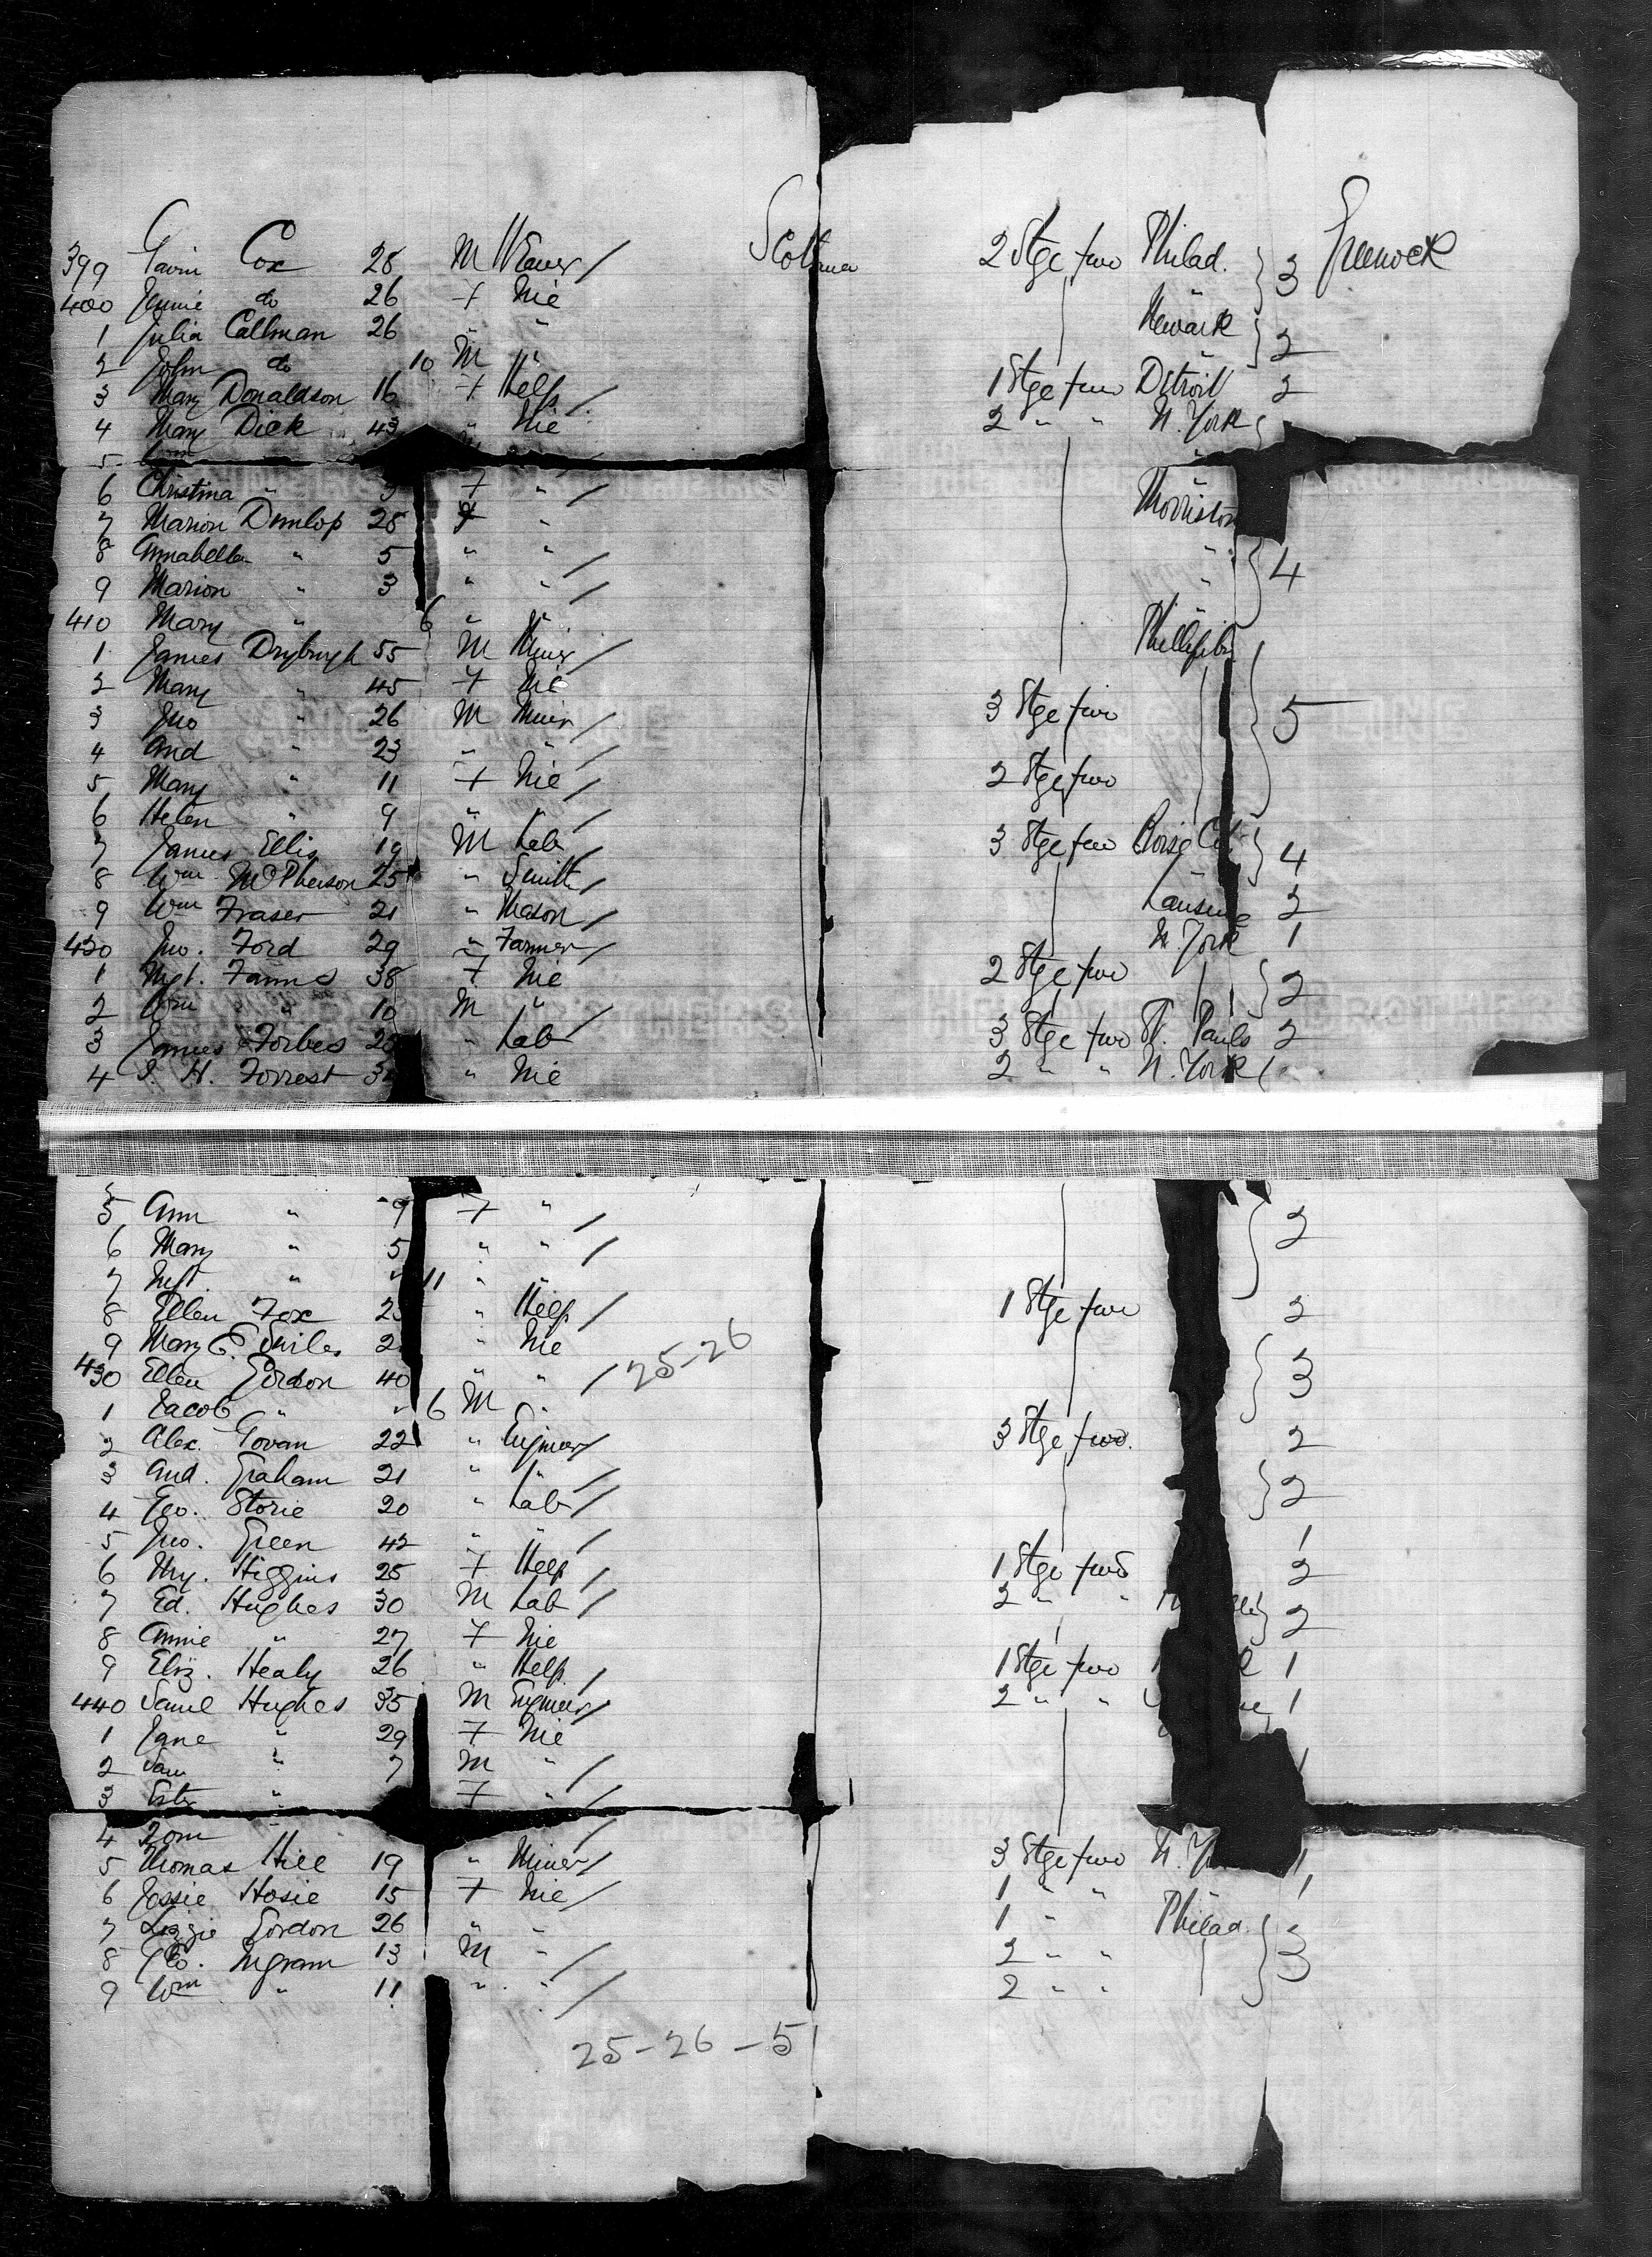 399 Gavin Cox 28 M Weaver / Scotland 2 Stge fwd Philad. 3 Greenock
400 Jennie do 26 F Nie "
1 Julia Callman 26 " " Newark 2
2 John do 10 M " "
3 Mary Donaldson 16 F Help / 1 Stge fwd Detroit 2
4 Mary Dick 43 " Nie 2 " " N. York
5 Wm
6 Christina " F " / "
7 Marion Dunlop 28 F " Morriston
8 Annabella " 5 " " / " 4
9 Marion " 3 " " / "
410 Mary " 6 " " "
1 James Dryburgh 55 M Miner /
2 Mary " 45 F Nie
3 Jno " 26 M Miner / 3 Stge fwd 5
4 And " 23 " " /
5 Mary " 11 F Nie / 2 Stge fwd
6 Helen " 9 " " /
7 James Ellis 19 M Lab / 3 Stge fwd 4
8 Wm McPherson 25 " Smith /
9 Wm Fraser 21 " Mason / Lansing 2
420 Jno. Ford 29 " Farmer / N. York 1
1 Mgt. 38 F Nie 2 Stge fwd 2
2 Wm " 10 M " /
3 James Forbes " Lab / 3 Stge fwd St. Pauls 2
4 J. H. Forrest " Nie 2 " " N. York
5 Ann " 9 F " /
6 Mary " 5 " " / 2
7 " " 11 " "
8 Ellen Fox " Help / 1 Stge fwd 2
9 Mary E. " Nie
430 Ellen Gordon 40 " " / 25-26 3
1 Jacob " " 6 M "
2 Alex. Govan 22 " Engineer / 3 Stge fwd. 2
3 And. Graham 21 " " / 2
4 Geo. Storie 20 " Lab /
5 Jno. Green 42 " " / 1
6 My. Higgins 25 F Help / 1 Stge fwd 2
7 Ed. Hughes 30 M Lab / 2 " " 2
8 Annie " 27 F Nie
9 Eliz. Healy 26 " Help / 1 Stge fwd 1
440 Saml Hughes 35 M Engineer / 2 " " 1
1 Jane " 29 F Nie
2 Sam " 7 M " / 1
3 " F " /
4 Tom " /
5 Thomas Hill 19 " Miner / 3 Stge fwd N. 1
6 Jessie Hosie 15 F Nie / 1 " " " 1
7 Lizzie Gordon 26 " " 1 " Philad.
8 Geo. Ingram 13 M " / 2 " " 3
9 Wm " 11 " " / 2 " "
25-26-5